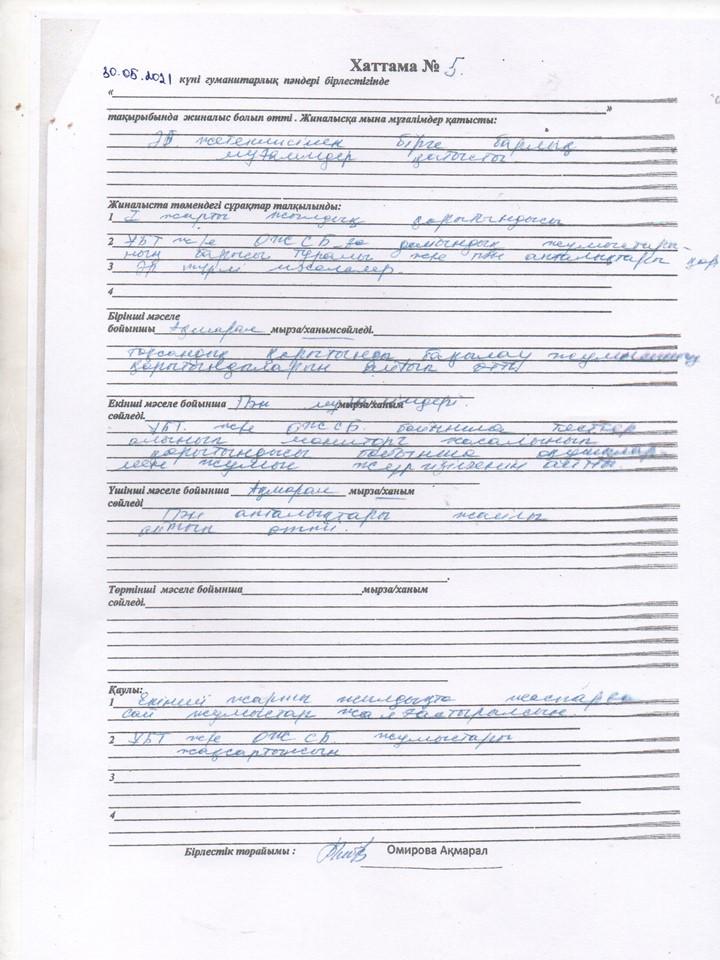 Хаттама № 5.
30.05.2021 күні гуманитарлық пәндері бірлестігінде
«
»
тақырыбында жиналыс болып өтті . Жиналысқа мына мұғалімдер қатысты:
ӘБ жетекшісімен бірге барлық
мұғалімдер қатысты
Жиналыста төмендегі сұрақтар талқылынды:
1 I жарты жылдық қорытындысы
2 ҰБТ және ОЖСБ дайындық жұмыстары-
ның барысы туралы және пән апталықтары
3 Әр түрлі мәселелер.
4
Бірінші мәселе
бойыншы Ақмарал мырза/ханымсөйледі.
тоқсандық қорытынды бақылау
қорытындыларын айтып өтті
Екінші мәселе бойынша Пән мұғалімдері. мырза/ханым
сөйледі.
ҰБТ және ОЖСБ бойынша тесттер
алынып мониторг жасалынып
қорытындысы бойынша
мен жұмыс жүргізілгенін айтты.
Үшінші мәселе бойынша Ақмарал мырза/ханым
сөйледі
Пән апталықтары жайлы
айтып өтті.
Төртінші мәселе бойынша мырза/ханым
сөйледі.
Қаулы:
1 Екінші жарты жылдықта жоспарға
сай жұмыстар жалғастыралсын.
2 ҰБТ және ОЖСБ жұмыстары
жақсартылсын
3
4
Бірлестік төрайымы : Омирова Ақмарал